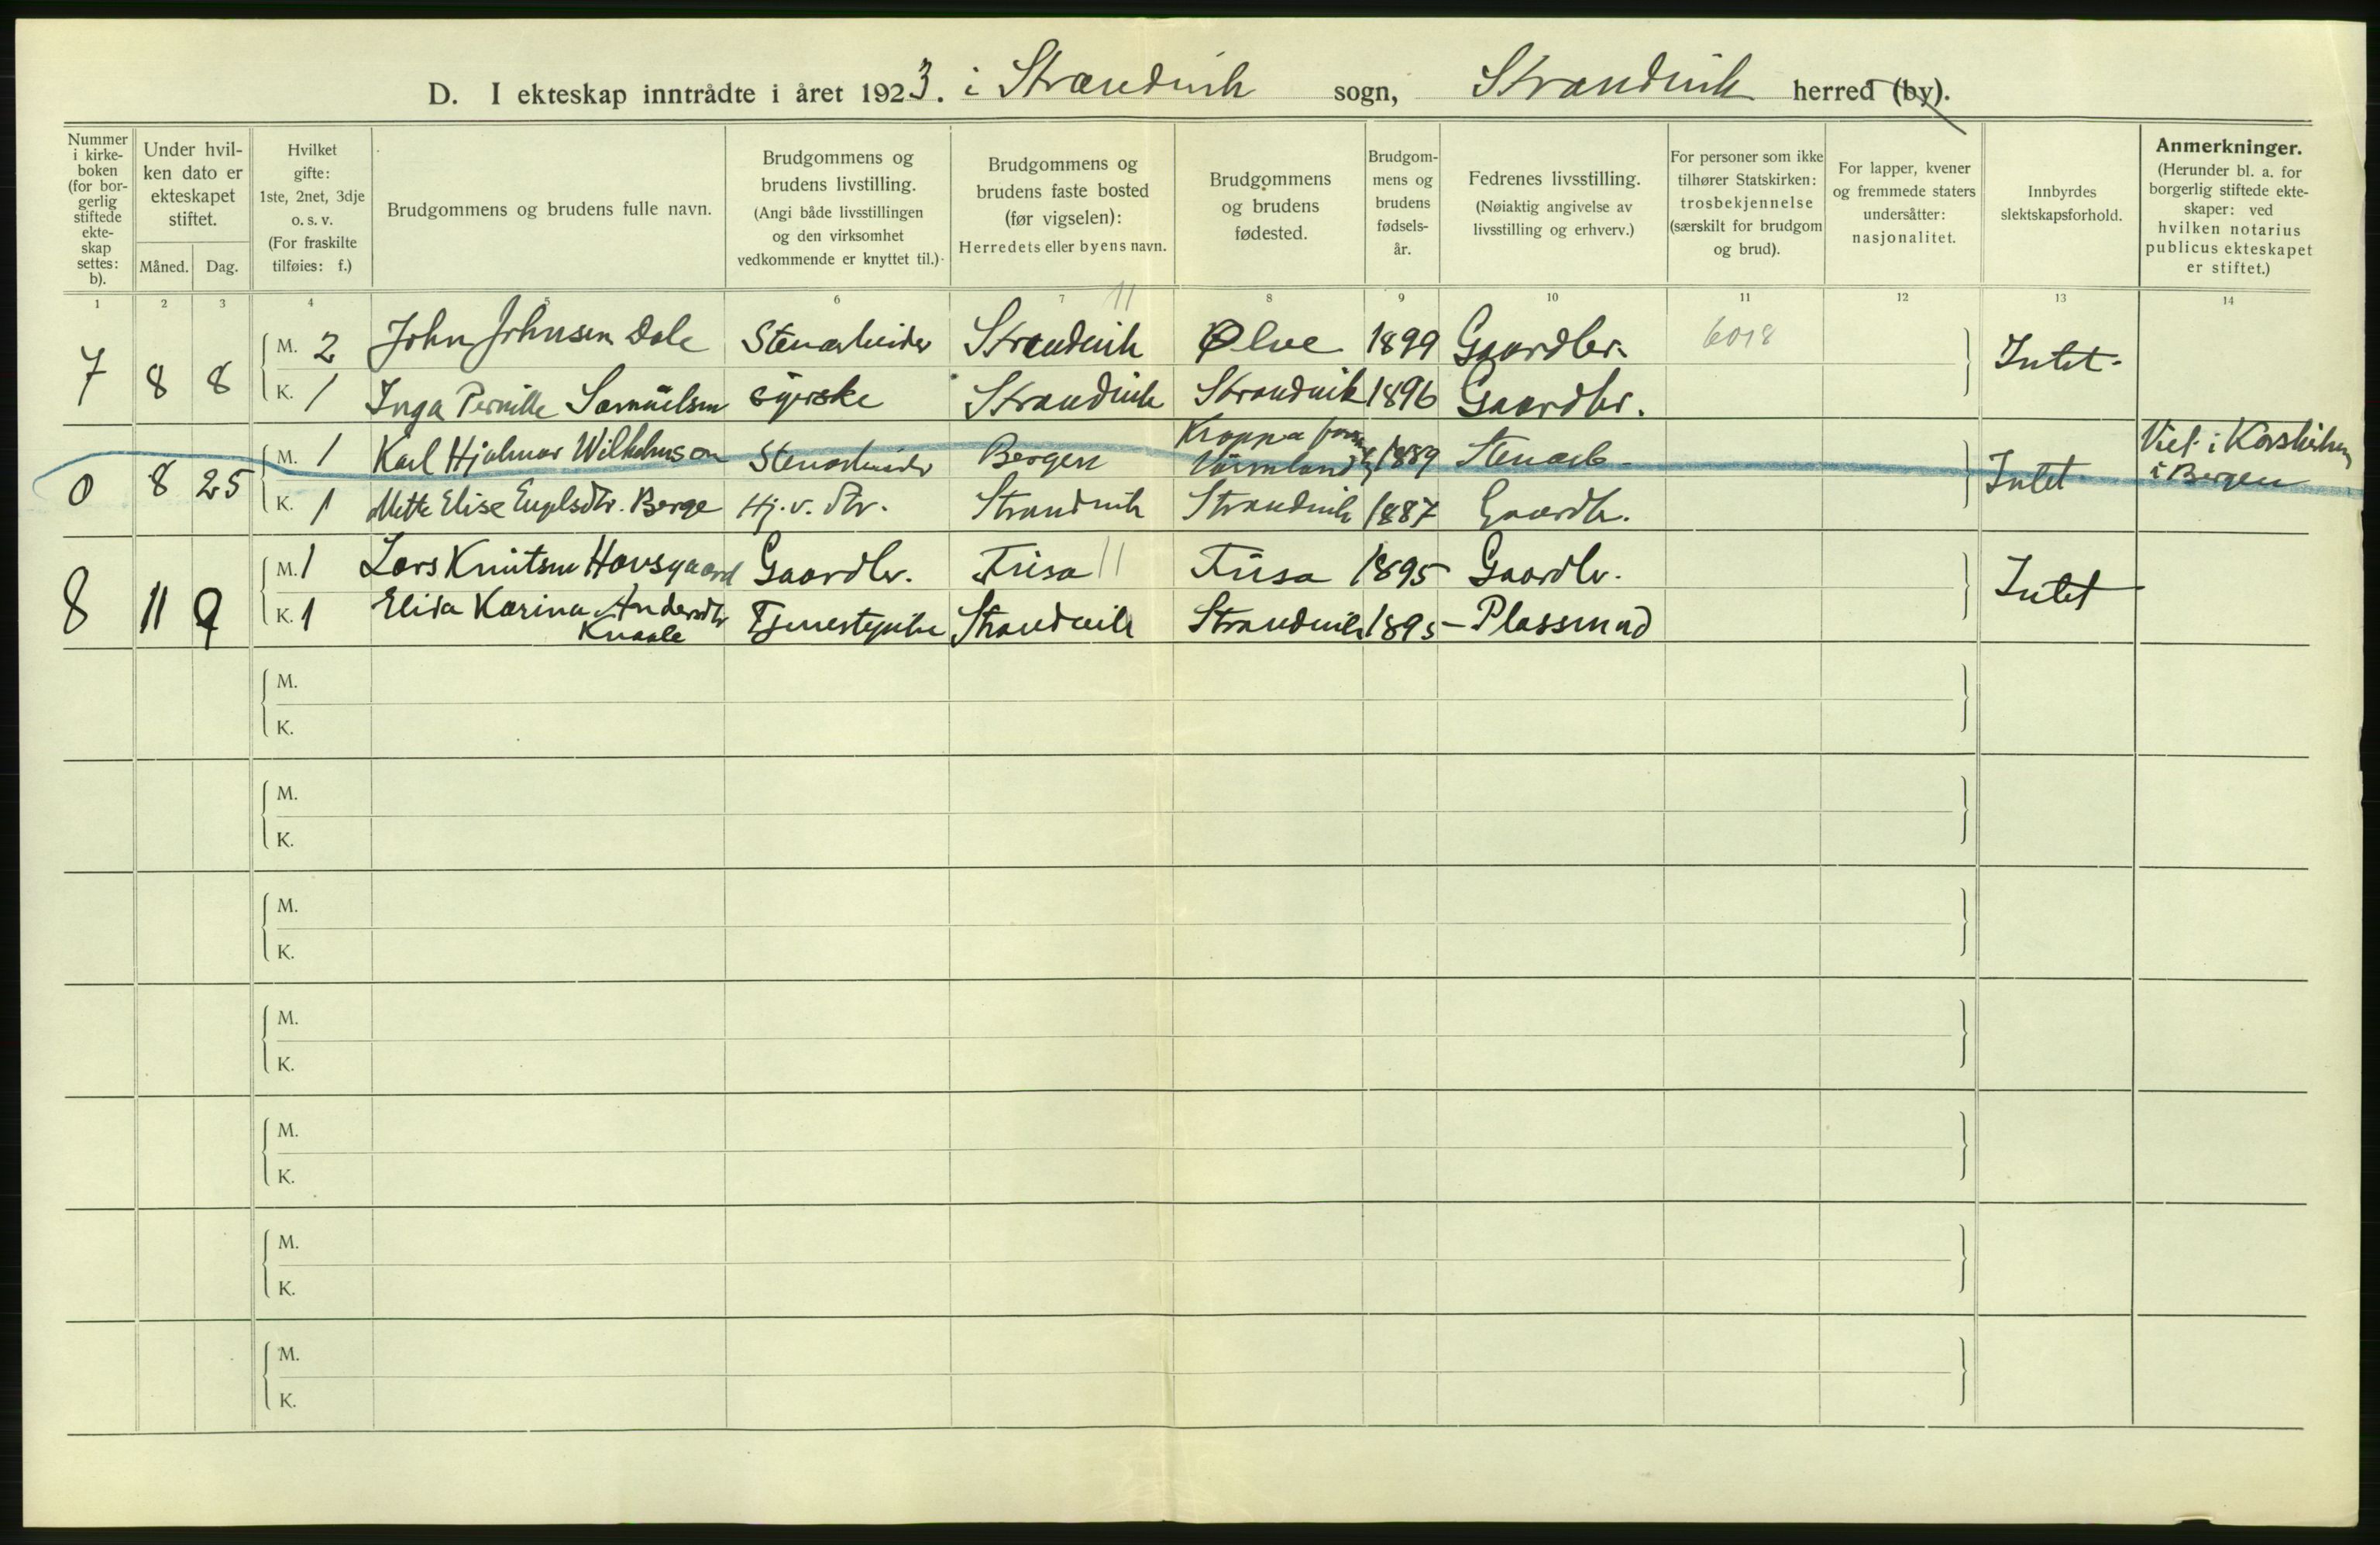 D. I ekteskap inntrådte i året 1923. i Strandvik sogn, Strandvik herred (by).
Nummer i kirke-boken (for bor-gerlig stiftede ekte-skap settes: b).
Under hvil-ken dato er ekteskapet stiftet.
Måned. Dag.
Hvilket gifte: 1ste, 2net, 3dje o. s. v. (For fraskilte tilføies: f.)
Brudgommens og brudens fulle navn.
Brudgommens og brudens livstilling. (Angi både livsstillingen og den virksomhet vedkommende er knyttet til.)
Brudgommens og brudens faste bosted (før vigselen): Herredets eller byens navn.
Brudgommens og brudens fødested.
Brudgom-mens og brudens fødsels-år.
Fedrenes livsstilling. (Nøiaktig angivelse av livsstilling og erhverv.)
For personer som ikke tilhører Statskirken: trosbekjennelse (særskilt for brudgom og brud).
For lapper, kvener og fremmede staters undersåtter: nasjonalitet.
Innbyrdes slektskapsforhold.
Anmerkninger. (Herunder bl. a. for borgerlig stiftede ekte-skaper: ved hvilken notarius publicus ekteskapet er stiftet.)
1 2 3 4 5 6 7 8 9 10 11 12 13 14
11
7 8 8 M. 2 John Johnsen Dale Stenarbeider Strandvik Ølve 1899 Gaardbr. 6018 Intet.
K. 1 Inga Pernille Samuelsen syerske Strandvik Strandvik 1896 Gaardbr.
0 8 25 M. 1 Karl Hjalmar Wilhelmson Stenarbeider Bergen Kroppa Värmland 1889 Stenarb. Intet Viet i Korskirken i Bergen
K. 1 Mette Elise Engelsdtr. Berge Hj. v. Str. Strandvik Strandvik 1887 Gaardb.
8 11 9 M. 1 Lars Knutsen Havsgaard Gaardbr. Fusa 11 Fusa 1895 Gaardbr. Intet
K. 1 Elida Karina Andersdtr Tjenestepike Strandvik Strandvik 1895 Plassmand
M.
K.
M.
K.
M.
K.
M.
K.
M.
K.
M.
K.
M.
K.